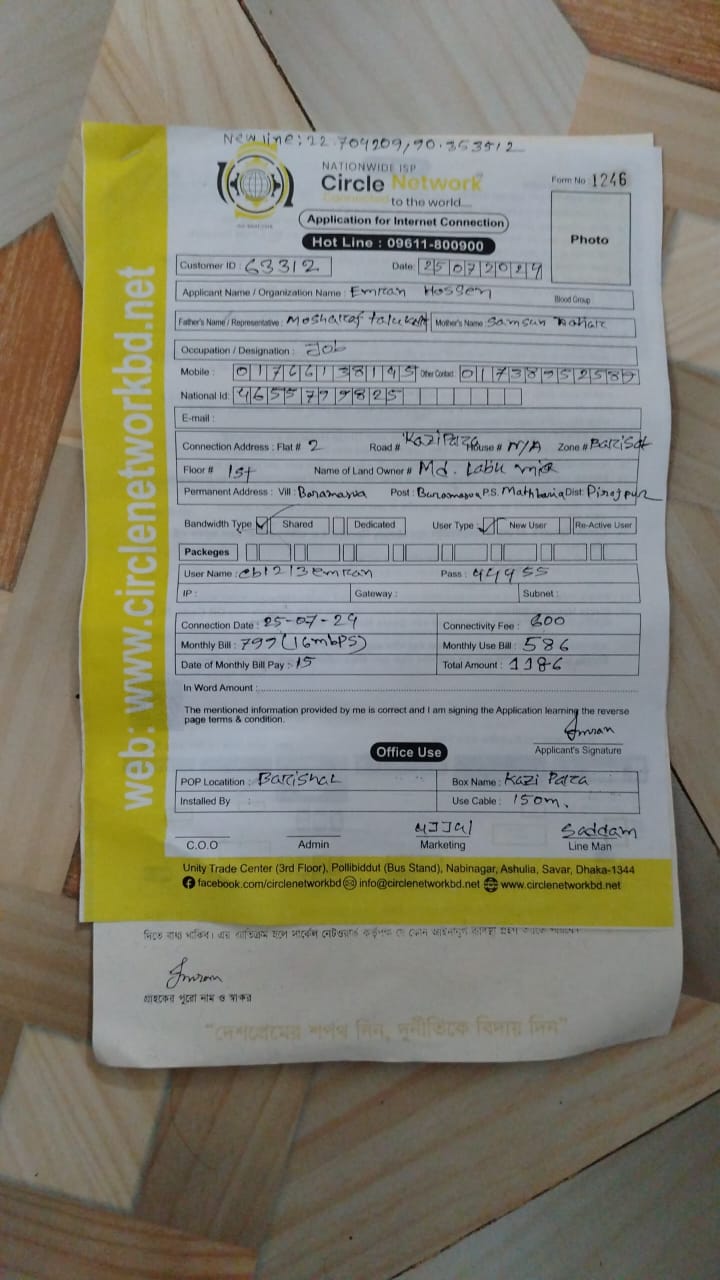 New line: 22.704209, 90.353512
NATIONWIDE ISP
Circle Network
Connected to the world....
Form No 1246
Application for Internet Connection
Hot Line : 09611-800900
Photo
Customer ID : 63312 Date: 25072024
Applicant Name / Organization Name : Emran Hossen Blood Group
Father's Name / Representative : Mosharaf talukdar Mother's Name: Samsun Nahar
Occupation / Designation : Job
Mobile : 01766138145 Other Contact: 01738952589
National Id: 4655799825
E-mail :
Connection Address : Flat # 2 Road # Kazi Para House # N/A Zone # Barisal
Floor # 1st Name of Land Owner # Md. Labu mia
Permanent Address : Vill : Baramasua Post : Buramasua P.S. Mathbaria Dist: Pirojpur
Bandwidth Type ✓ Shared Dedicated User Type : ✓ New User Re-Active User
Packeges
User Name : cb1213emran Pass : 44455
IP : Gateway : Subnet :
Connection Date : 25-07-24 Connectivity Fee : 600
Monthly Bill : 797 (16mbPS) Monthly Use Bill : 586
Date of Monthly Bill Pay :- 15 Total Amount : 1186
In Word Amount :
The mentioned information provided by me is correct and I am signing the Application learning the reverse
page terms & condition.
Imran
Applicant's Signature
Office Use
POP Locatition : Barishal Box Name : Kazi Para
Installed By : Use Cable : 150m.
Saddam
C.O.O Admin Marketing Line Man
Unity Trade Center (3rd Floor), Pollibiddut (Bus Stand), Nabinagar, Ashulia, Savar, Dhaka-1344
facebook.com/circlenetworkbd info@circlenetworkbd.net www.circlenetworkbd.net
web: www.circlenetworkbd.net
দিতে বাধ্য থাকিব। এর ব্যতিক্রম হলে সার্কেল নেটওয়ার্ক কর্তৃপক্ষ যে কোন আইনানুগ ব্যবস্থা গ্রহণ
Imran
গ্রাহকের পুরো নাম ও স্বাক্ষর
“দেশপ্রেমের শপথ নিন, দুর্নীতিকে বিদায় দিন”